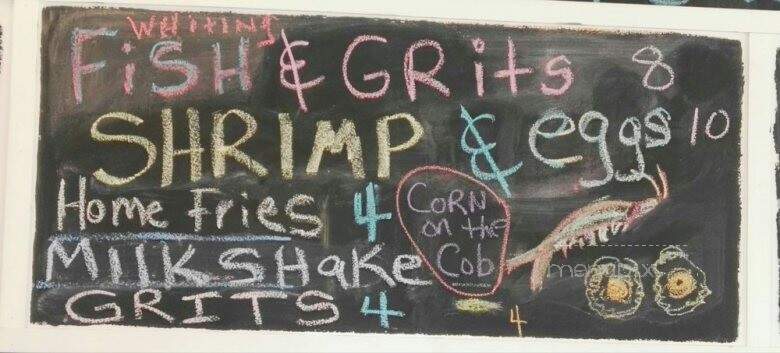 WHITING
FiSH & GRits 8
SHRIMP & eggs 10
Home Fries 4
CORN
on the
Cob
4
MilkSHake
GRITS 4